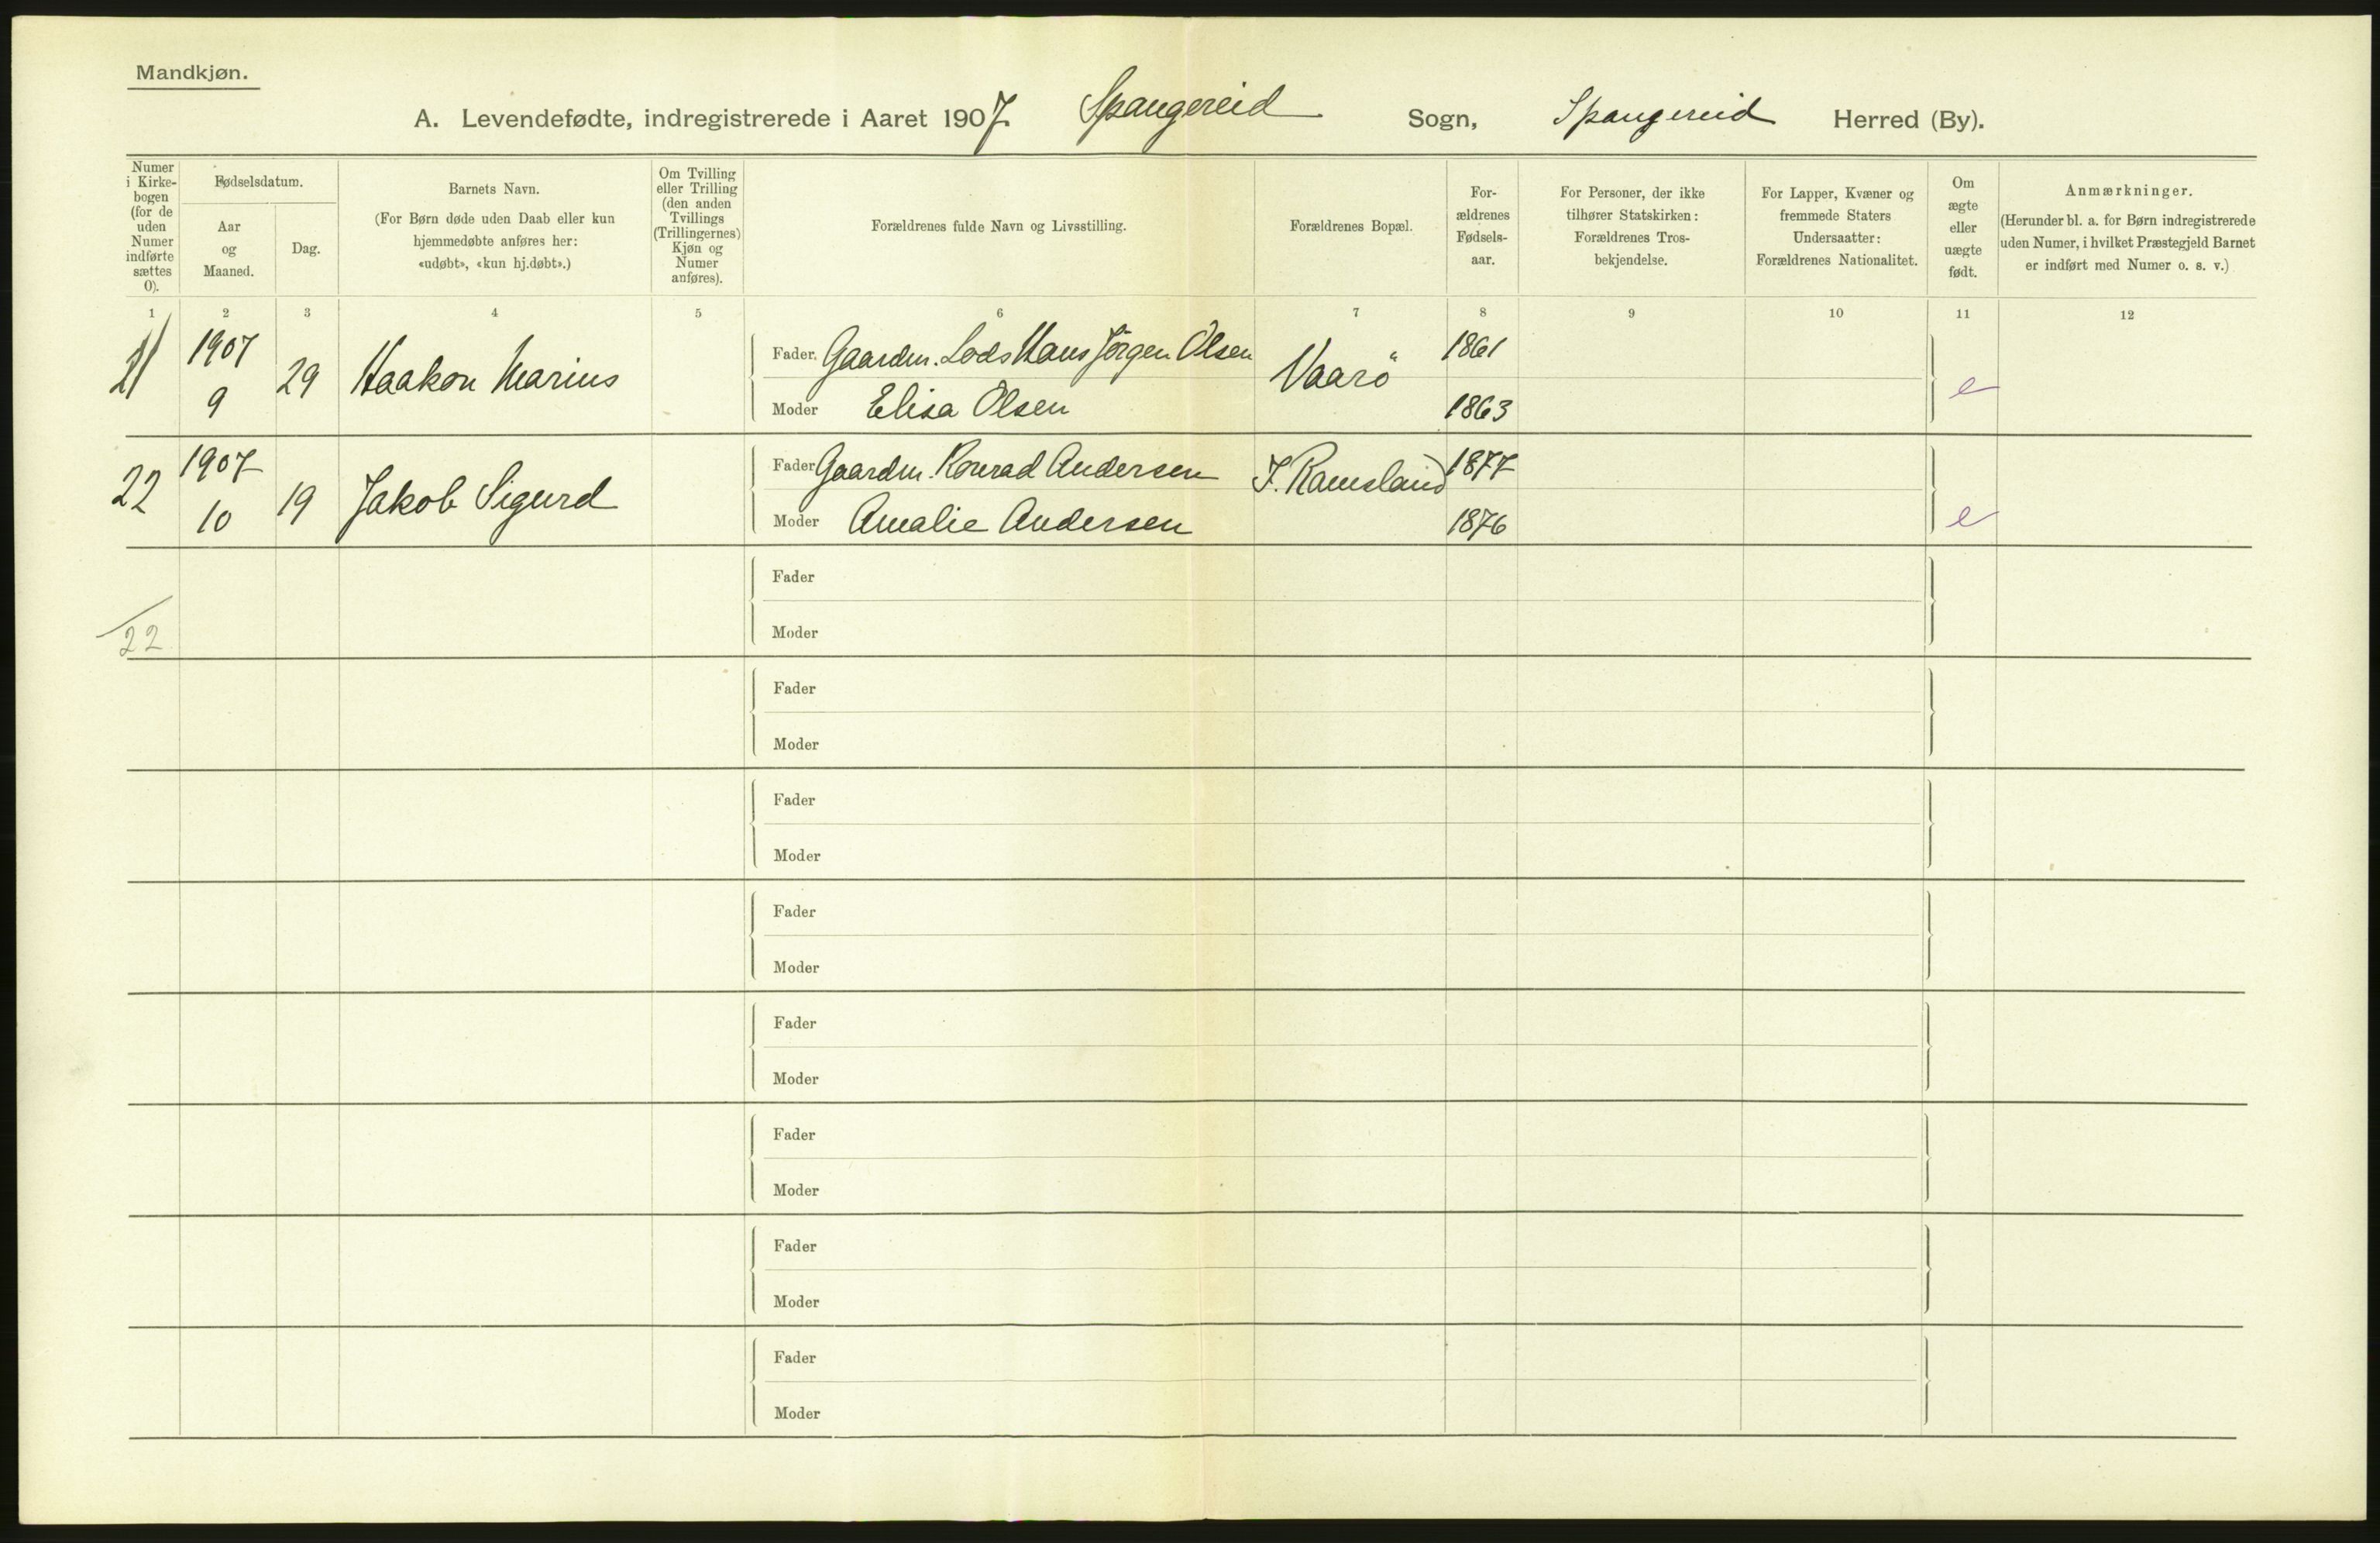 Mandkjøn.
A. Levendefødte, indregistrerede i Aaret 1907 Spangereid Sogn, Spangereid Herred (By).
Numer i Kirke-bogen (for de uden Numer indførte sættes 0).
Fødselsdatum.
Aar og Maaned.
Dag.
Barnets Navn.
(For Børn døde uden Daab eller kun
hjemmedøbte anføres her:
«udøbt», «kun hj.døbt».)
Om Tvilling
eller Trilling
(den anden
Tvillings
(Trillingernes)
Kjøn og
Numer
anføres).
Forældrenes fulde Navn og Livsstilling.
Forældrenes Bopæl.
For-
ældrenes
Fødsels-
aar.
For Personer, der ikke
tilhører Statskirken:
Forældrenes Tros-
bekjendelse.
For Lapper, Kvæner og
fremmede Staters
Undersaatter:
Forældrenes Nationalitet.
Om
ægte
eller
uægte
født.
Anmærkninger.
(Herunder bl. a. for Børn indregistrerede
uden Numer, i hvilket Præstegjeld Barnet
er indført med Numer o. s. v.)
1 2 3 4 5 6 7 8 9 10 11 12
21 1907 9 29 Haakon Marius Fader Gaardm. Lods Hans Jörgen Olsen Vaarö 1861 e
Moder Elisa Olsen 1863
22 1907 10 19 Jakob Sigurd Fader Gaardm. Konrad Andersen J. Ramsland 1877 e
Moder Amalie Andersen 1876
Fader
22
Moder
Fader
Moder
Fader
Moder
Fader
Moder
Fader
Moder
Fader
Moder
Fader
Moder
Fader
Moder